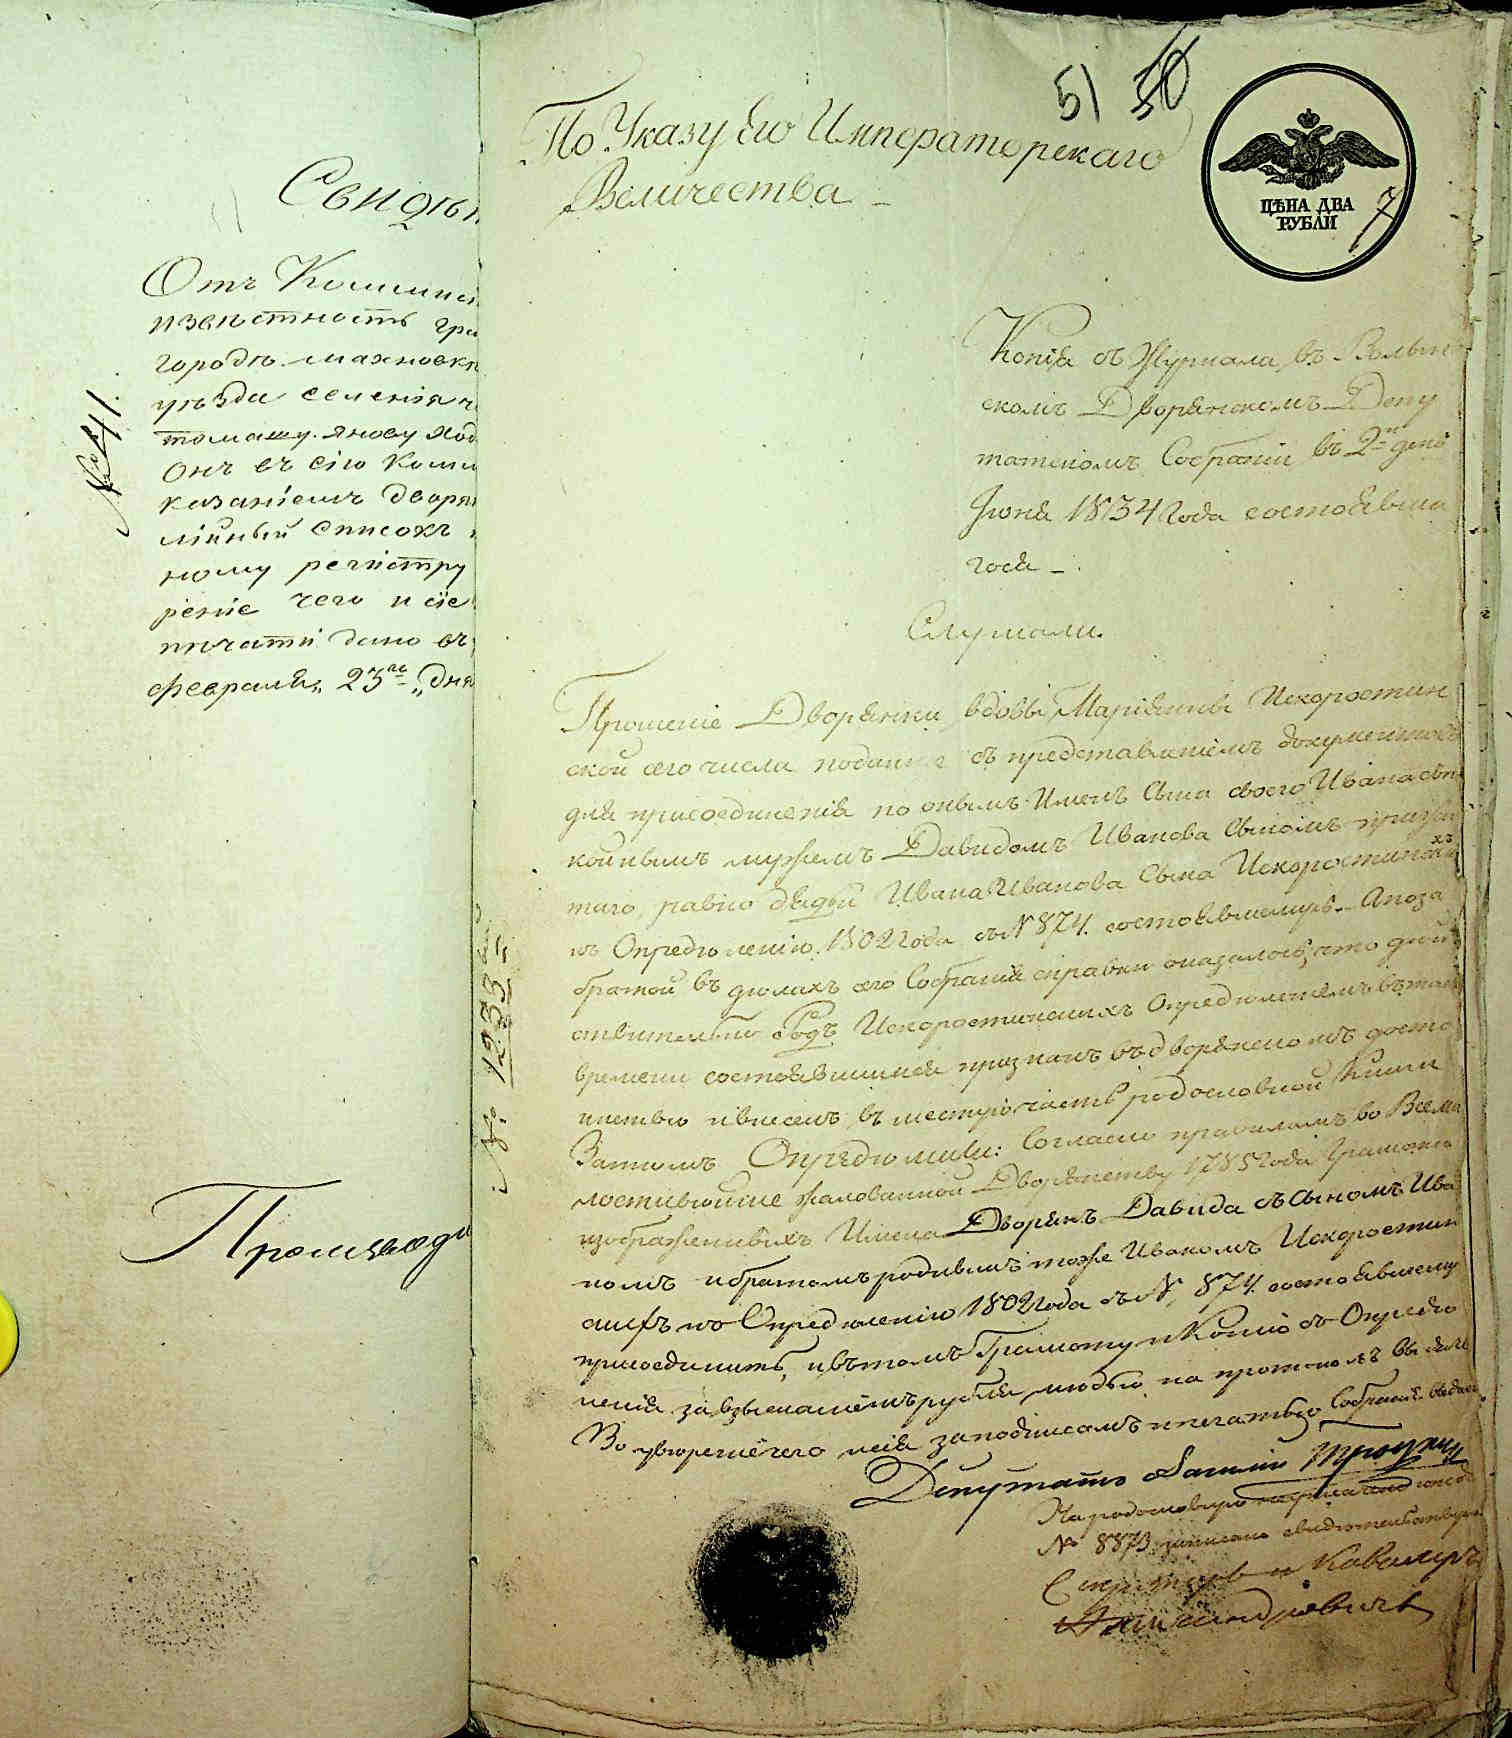 Свидѣт
Отъ Коммисі
извѣстность гра
городѣ махновк
уѣзда селенія
томашу янову ход
онъ въ сію Комм
казаніемъ дворян
лійный списокъ
ному регістру
реніе чего и сіе
печати дано въ
февраля „ 23го „ дня
№ 41.
51 50
По Указу Его Императорскаго
Величества
ЦѢНА ДВА
РУБЛИ
7
Копія съ Журнала въ Волын
скомъ Дворянскомъ Депу
татскомъ Собраніи въ 2й день
Іюня 1834 Года состоявша
гося
Слушали.
Прошеніе Дворянки вдовы Маріянны Искоростин
ской сего числа поданное съ представленіемъ документовъ
для присоединенія по онымъ Именъ Сына своего Ивана съ по
койнымъ мужемъ Давидомъ Иванова Сыномъ прижи
таго, равно дяди Ивана Иванова Сына Искоростинскихъ
къ Опредѣленію 1802 Года съ № 874. состоявшемуся. А по за
бранной въ дѣлахъ сего Собранія справки оказалось, что дѣй
ствительно Родъ Искоростинскихъ Опредѣленіемъ въ томъ
времени состоявшимся признанъ въ дворянскомъ досто
инствѣ и внесенъ въ шестую часть родословной Книги
Затѣмъ Опредѣлили: Согласно правиламъ во Всеми
лостивѣйше жалованной Дворянству 1785 Года Грамотѣ
изображеннымъ Имена Дворянъ Давида съ Сыномъ Ива
номъ и братомъ роднымъ тоже Иваномъ Искоростин
скихъ къ Опредѣленію 1802 Года съ № 874. состоявшемуся
присоединить, и въ томъ Грамоту и Копію съ Опредѣ
ленія за взысканіемъ рубля мѣдью на протоколъ выдать
Во увѣреніе чего и сія за подписомъ и печатью Собранія выдана
Депутатъ
№ 8873 записано
Секретарь и Кавалеръ
№ 1233